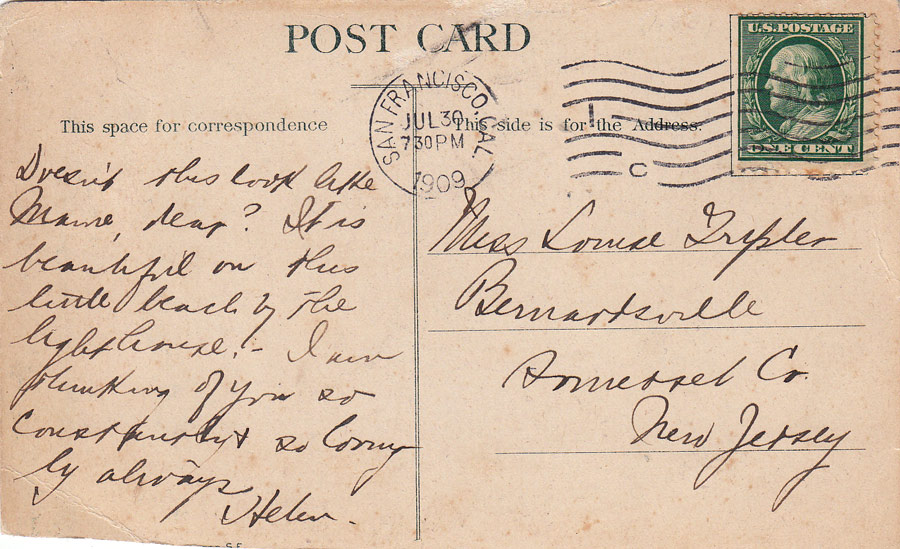 POST CARD
This space for correspondence
This side is for the Address.
SAN FRANCISCO, CAL.
JUL 30
7 30 PM
1909
C
U.S. POSTAGE
ONE CENT
Doesn't this look like
Maine, dear? It is
beautiful on this
little beach by the
lighthouse. - I am
thinking of you so
constantly & so loving
ly always
Helen.
Miss Louise Tripler
Bernardsville
Somerset Co.
New Jersey